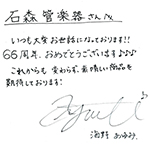 石森管楽器さんへ
いつも大変お世話になっております!!
66周年、おめでとうございます♪♪♪
これからも変わらず、素晴しい商品を
期待しております!
海野あゆみ